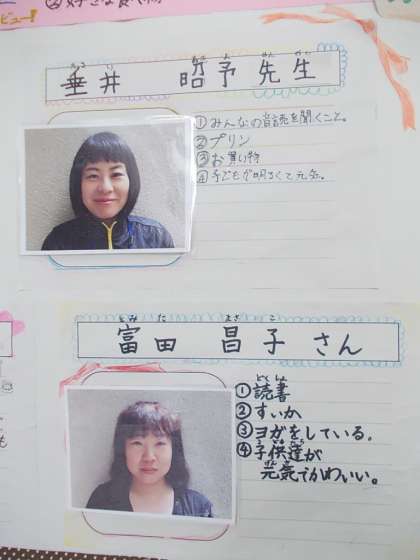 ビュー!
②好きな食べ物
垂井 昭予先生
①みんなの音読を聞くこと。
②プリン
③お買い物
④子どもが明るくて元気。
とみ た まさ こ
富田 昌子さん
どくしょ
①読書
②すいか
③ヨガをしている。
④子供達が
元気でかわいい。
も